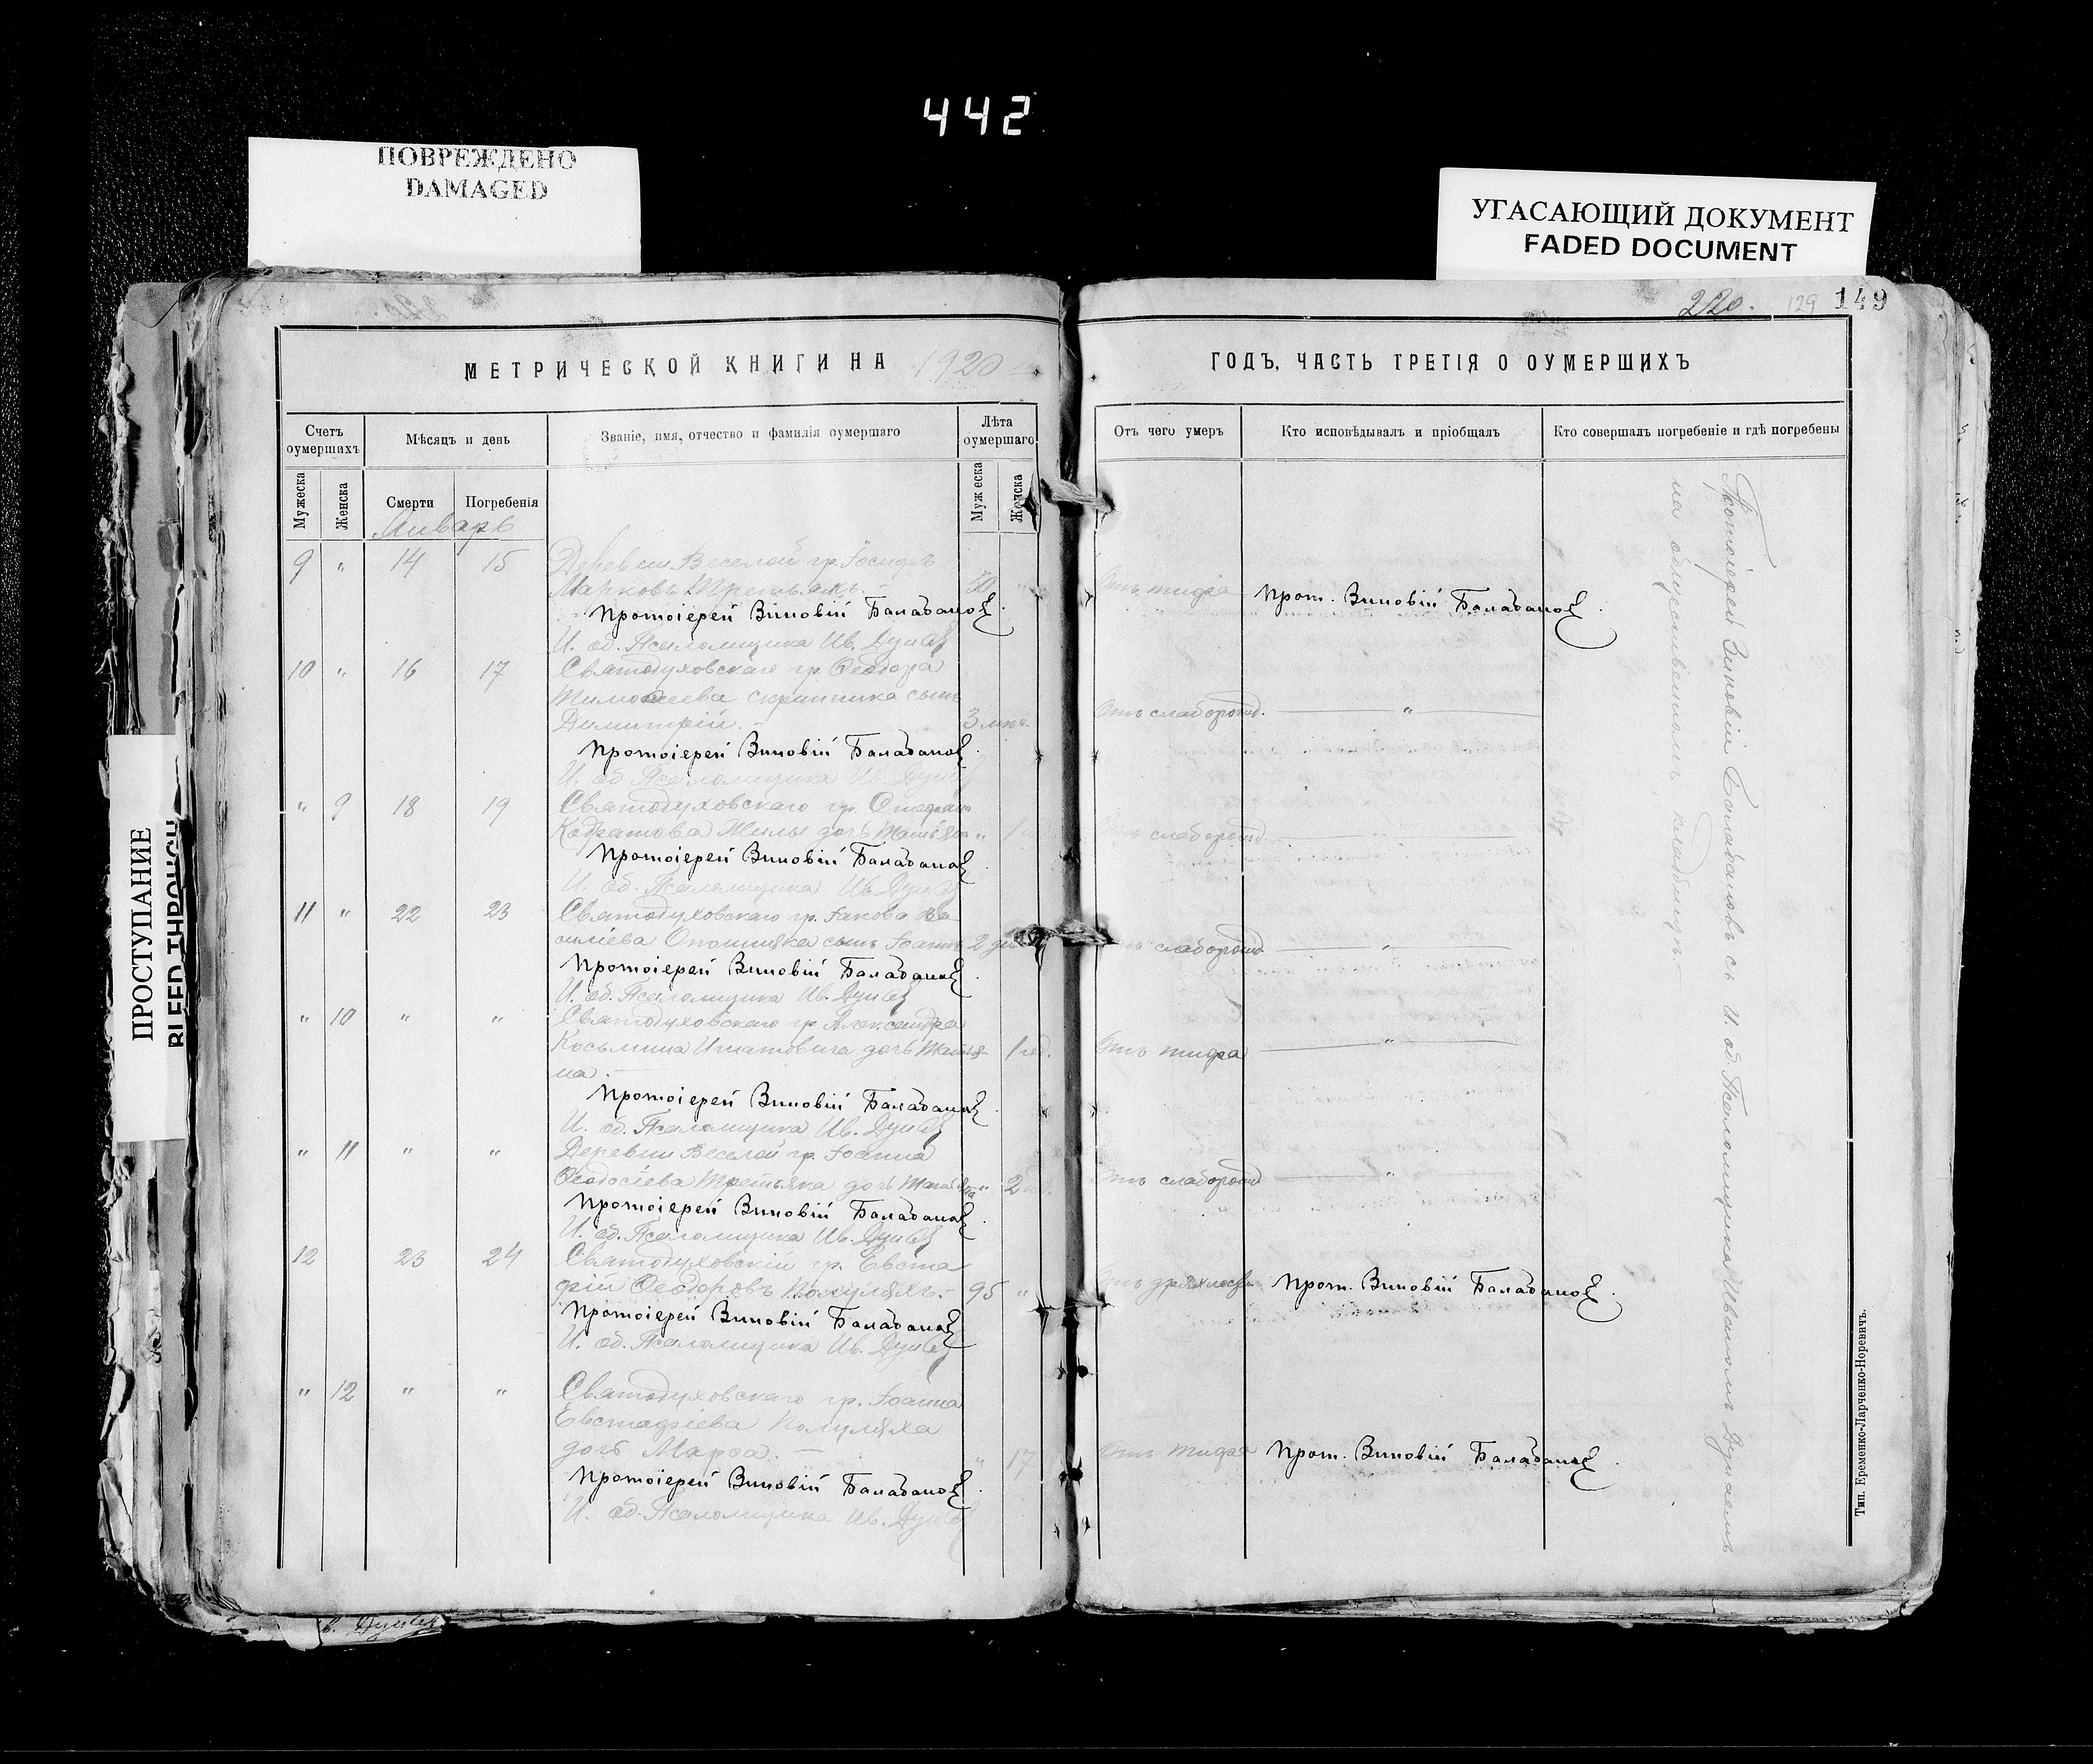 442
ПОВРЕЖДЕНО
DAMAGED
УГАСАЮЩИЙ ДОКУМЕНТ
FADED DOCUMENT
ПРОСТУПАНИЕ
BLEED THROUGH
220. 129 149
МЕТРИЧЕСКОЙ КНИГИ НА 1920
ГОДЪ, ЧАСТЬ ТРЕТІЯ О ОУМЕРШИХЪ
Счетъ оумершихъ
Мѣсяцъ и день
Званіе, имя, отчество и фамилія оумершаго
Лѣта оумершаго
Отъ чего умеръ
Кто исповѣдывалъ и пріобщалъ
Кто совершалъ погребеніе и гдѣ погребены
Мужеска
Женска
Смерти
Погребенія
Мужеска
Женска
Январь
9 " 14 15 Деревни Веселой гр. Іосифъ
Марковъ Третьякъ. 50 " Отъ тифа Прот. Зиновій Балабановъ.
Протоіерей Зиновій Балабановъ.
И. об. Псаломщика Ив. Дунаевъ
10 " 16 17 Святодуховскаго гр. Ѳеодора
Тимоѳеева Скрипника сынъ
Димитрій. 3 Отъ слаборожд. "
Протоіерей Зиновій Балабановъ.
И. об. Псаломщика Ив. Дунаевъ
" 9 18 19 Святодуховскаго гр.
Кодратова Жилы дочь Татьяна " 1 слаборожд.
Протоіерей Зиновій Балабановъ.
И. об. Псаломщика Ив. Дунаевъ
11 " 22 23 Святодуховскаго гр. Іакова Ва
силіева Опошняка сынъ Іоаннъ 2 слаборожд. "
Протоіерей Зиновій Балабановъ.
И. об. Псаломщика Ив. Дунаевъ
" 10 " " Святодуховскаго гр. Александра
Косьмина Игнатовича дочь Татья-
на. 1 год. Отъ тифа "
Протоіерей Зиновій Балабановъ.
И. об. Псаломщика Ив. Дунаевъ
" 11 " " Деревни Веселой гр. Іоанна
Ѳеодосіева Третьяка дочь Татьяна " 2 Отъ слаборожд. "
Протоіерей Зиновій Балабановъ.
И. об. Псаломщика Ив. Дунаевъ
12 23 24 Святодуховскій гр. Евста
фій Ѳеодоровъ Полуляхъ. 95 " Отъ дряхлости Прот. Зиновій Балабановъ.
Протоіерей Зиновій Балабановъ
И. об. Псаломщика Ив. Дунаевъ
" 12 " " Святодуховскаго гр. Іоанна
Евстафіева Полуляха
дочь Марѳа. " 17 Отъ тифа Прот. Зиновій Балабановъ.
Протоіерей Зиновій Балабановъ.
И. об. Псаломщика Ив. Дунаевъ
Протоіерей Зиновій Балабановъ съ И. об. Псаломщика Иваномъ Дунаевъ
на общественномъ кладбищѣ.
Тип. Еременко-Ларченко-Норевичъ.
в. Дунаев